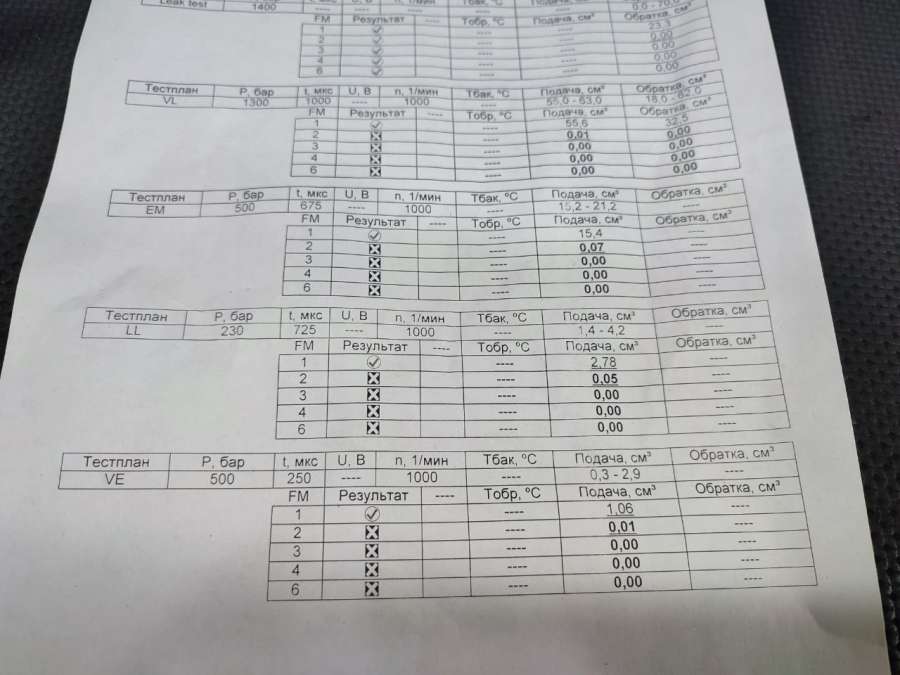 Leak test 1400 ---- ---- ---- ---- 0,0 - 70,0
FM Результат ---- Тобр, ºC Подача, см³ Обратка, см³
1 ---- ---- 23,3
2 ---- ---- 0,00
3 ---- ---- 0,00
4 ---- ---- 0,00
6 ---- ---- 0,00
Тестплан P, бар t, мкс U, В n, 1/мин Тбак, ºC Подача, см³ Обратка, см³
VL 1300 1000 ---- 1000 ---- 55,0 - 63,0 18,0 - 82,0
FM Результат ---- Тобр, ºC Подача, см³ Обратка, см³
1 ---- 55,6 32,5
2 ---- 0,01 0,00
3 ---- 0,00 0,00
4 ---- 0,00 0,00
6 ---- 0,00 0,00
Тестплан P, бар t, мкс U, В n, 1/мин Тбак, ºC Подача, см³ Обратка, см³
EM 500 675 ---- 1000 ---- 15,2 - 21,2 ----
FM Результат ---- Тобр, ºC Подача, см³ Обратка, см³
1 ---- 15,4 ----
2 ---- 0,07 ----
3 ---- 0,00 ----
4 ---- 0,00 ----
6 ---- 0,00 ----
Тестплан P, бар t, мкс U, В n, 1/мин Тбак, ºC Подача, см³ Обратка, см³
LL 230 725 ---- 1000 ---- 1,4 - 4,2 ----
FM Результат ---- Тобр, ºC Подача, см³ Обратка, см³
1 ---- 2,78 ----
2 ---- 0,05 ----
3 ---- 0,00 ----
4 ---- 0,00 ----
6 ---- 0,00 ----
Тестплан P, бар t, мкс U, В n, 1/мин Тбак, ºC Подача, см³ Обратка, см³
VE 500 250 ---- 1000 ---- 0,3 - 2,9 ----
FM Результат ---- Тобр, ºC Подача, см³ Обратка, см³
1 ---- 1,06 ----
2 ---- 0,01 ----
3 ---- 0,00 ----
4 ---- 0,00 ----
6 ---- 0,00 ----